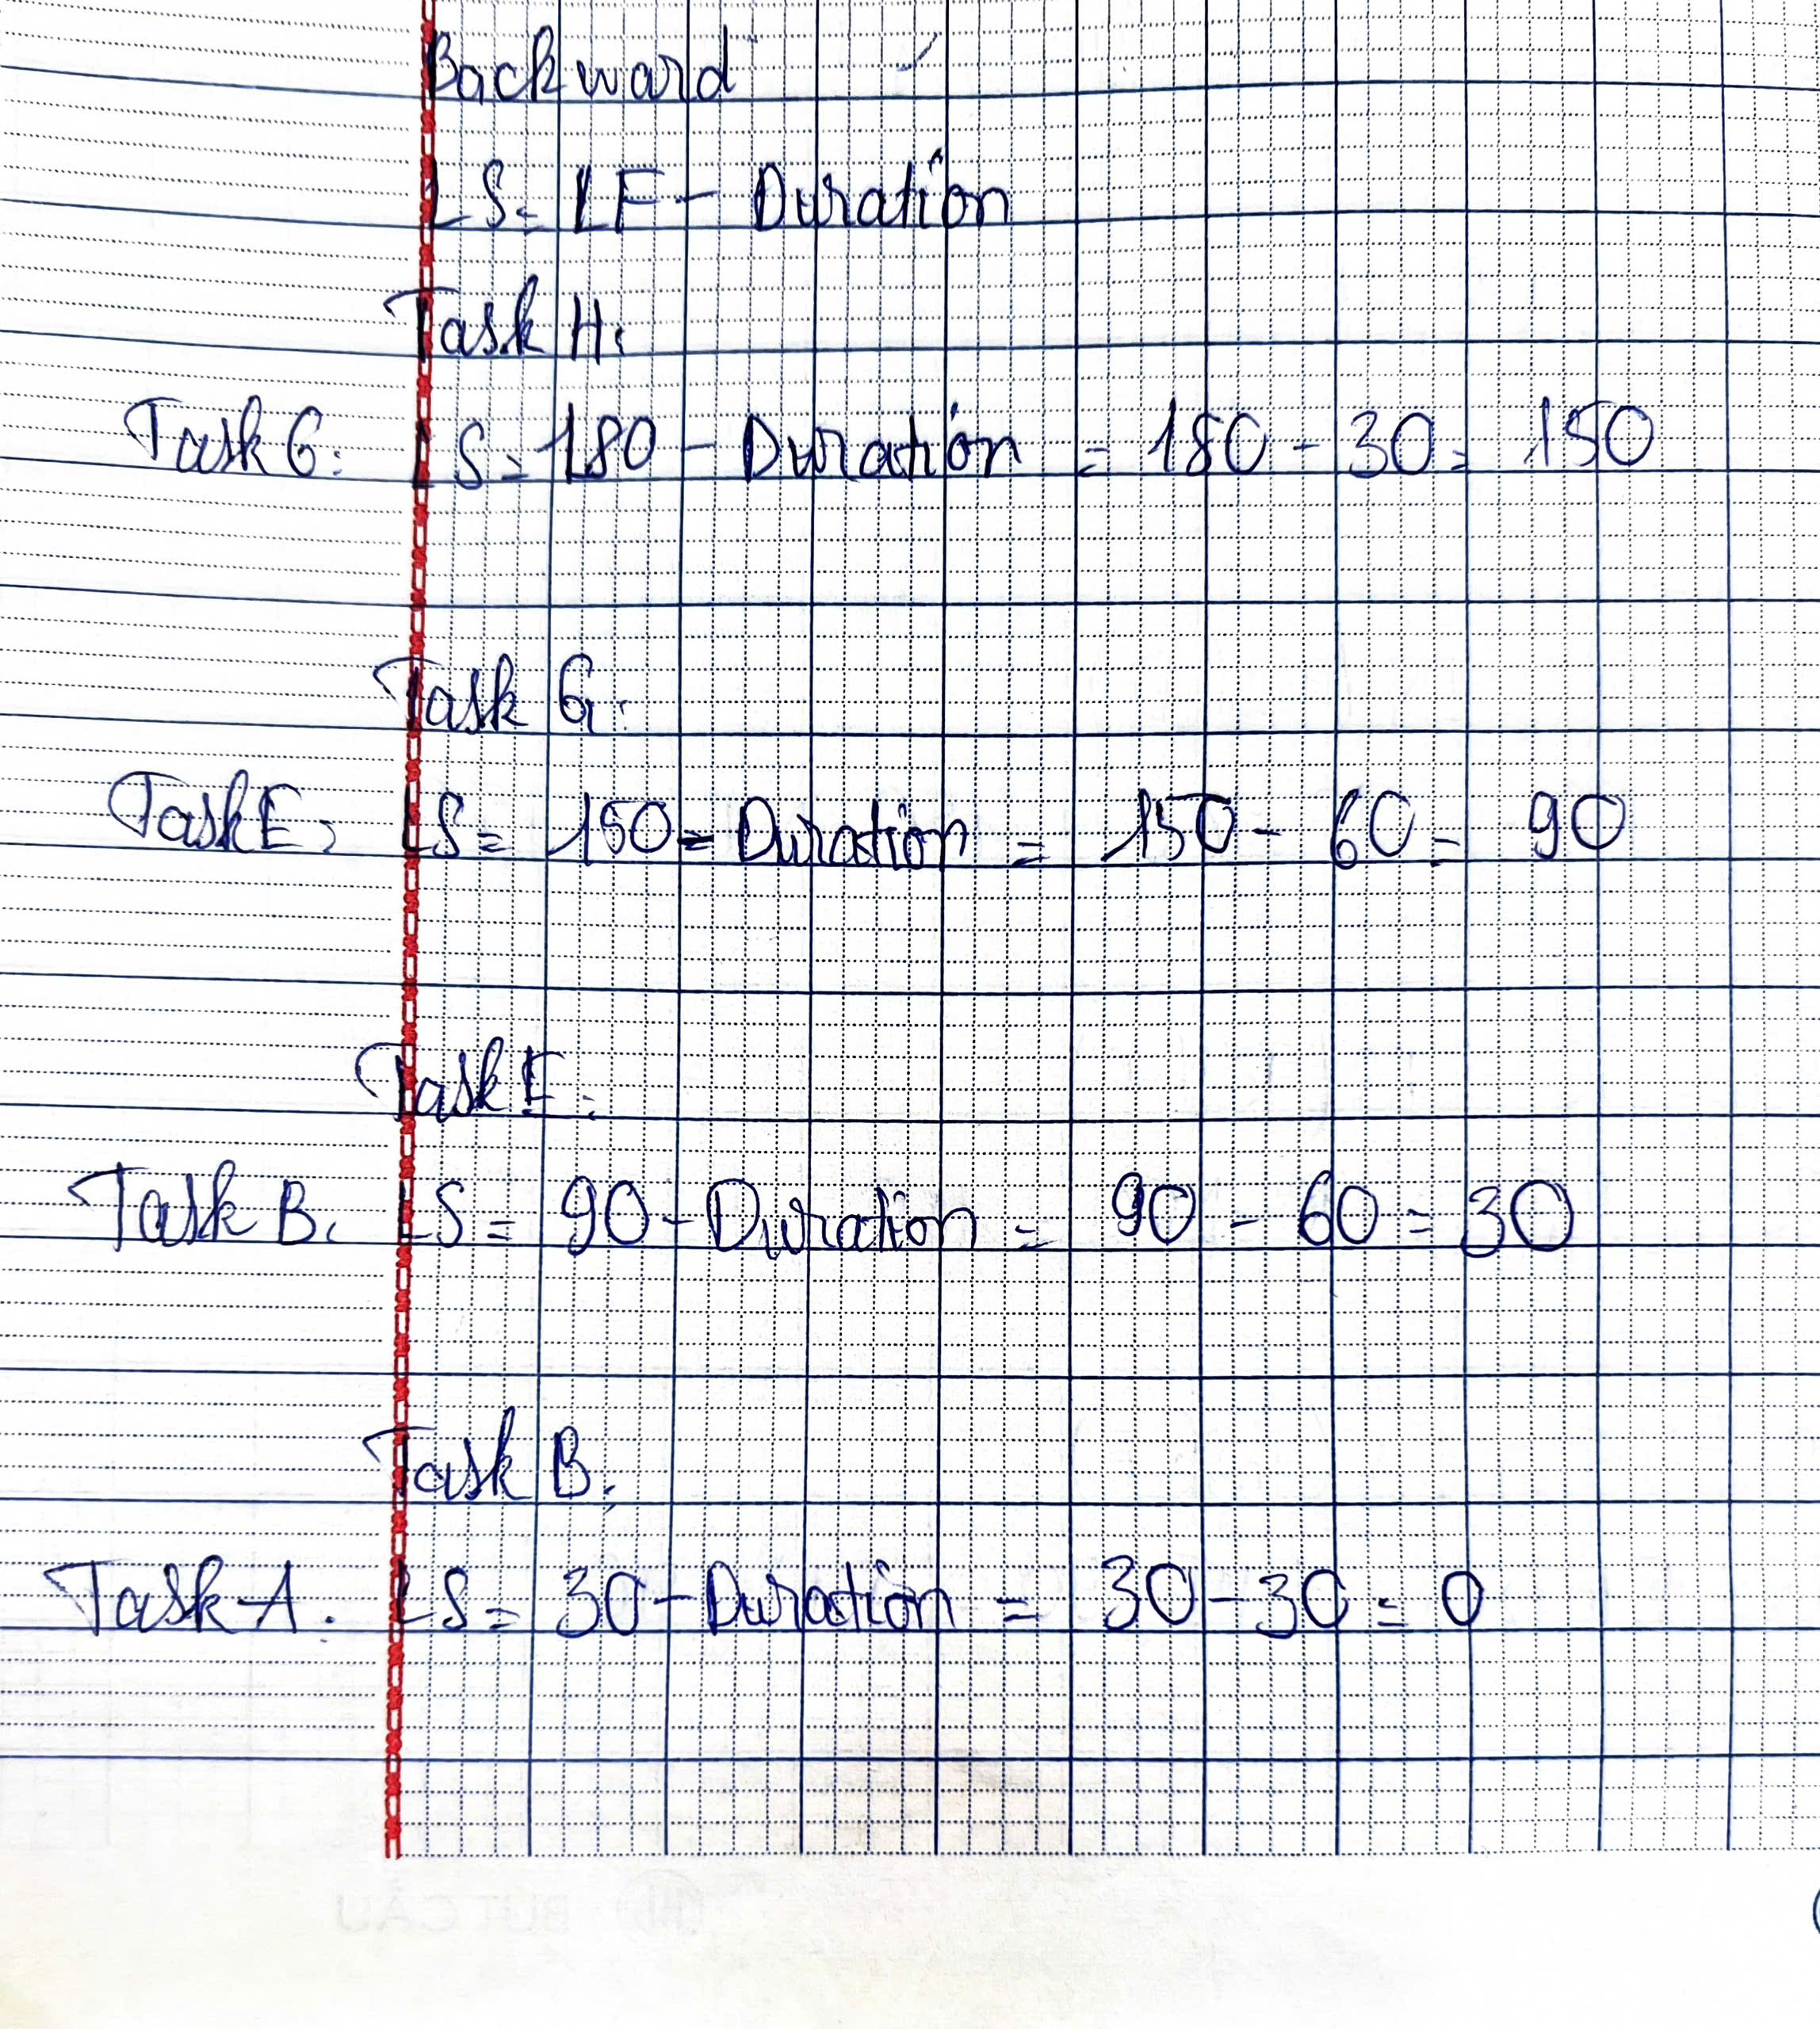 Backward
LS = LF - Duration
Task H:
Task G: LS = 180 - Duration = 180 - 30 = 150
Task G:
Task E: LS = 150 - Duration = 150 - 60 = 90
Task E:
Task B: LS = 90 - Duration = 90 - 60 = 30
Task B:
Task A: LS = 30 - Duration = 30 - 30 = 0